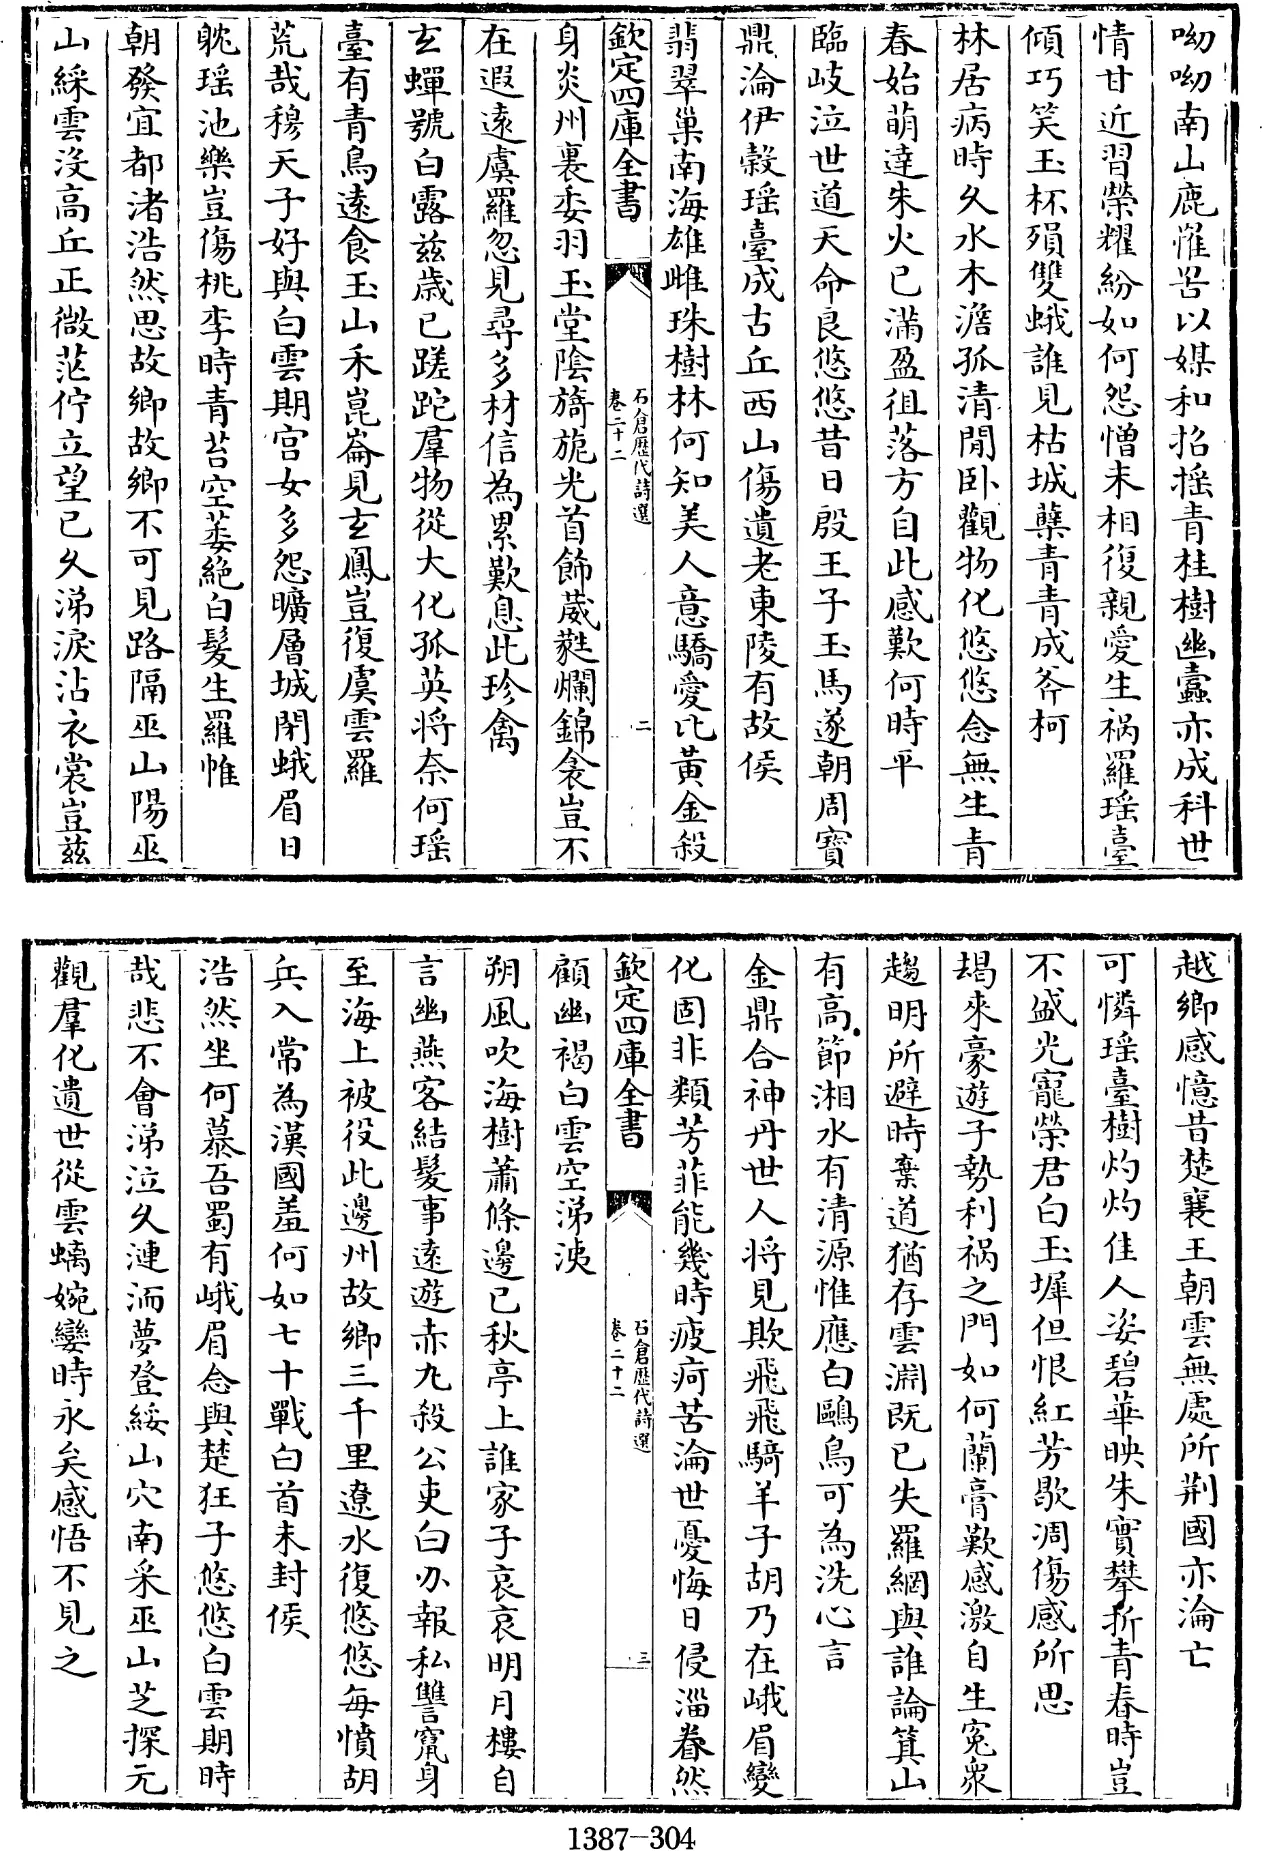 呦呦南山鹿罹罟以媒和招揺青桂樹幽蠧亦成科世
情甘近習榮耀紛如何怨憎未相復親愛生禍羅瑶臺
傾巧笑玉杯殞雙蛾誰見枯城蘖青青成斧柯
林居病時久水木澹孤清閒卧觀物化悠悠念無生青
春始萌達朱火已滿盈徂落方自此感歎何時平
臨岐泣世道天命良悠悠昔日殷王子玉馬遂朝周寳
鼎淪伊榖瑶臺成古丘西山傷遺老東陵有故侯
翡翠巢南海雄雌珠樹林何知美人意驕愛比黄金殺
欽定四庫全書
石倉歴代詩選
卷二十二
二
身炎州裏委羽玉堂陰旖旎光首飾葳蕤爛錦衾豈不
在遐遠虞羅忽見尋多材信為累歎息此珍禽
玄蟬號白露兹歲已蹉跎羣物從大化孤英将奈何瑶
臺有青鳥逺食玉山禾崑崙見玄鳳豈復虞雲羅
荒哉穆天子好與白雲期宫女多怨曠層城閉蛾眉日
躭瑶池樂豈傷桃李時青苔空萎絶白髮生羅帷
朝發宜都渚浩然思故鄉故鄉不可見路隔巫山陽巫
山綵雲沒高丘正微茫佇立望已久涕淚沾衣裳豈兹
越鄉感憶昔楚襄王朝雲無處所荆國亦淪亡
可憐瑶臺樹灼灼佳人姿碧華映朱實攀折青春時豈
不盛光寵榮君白玉墀但恨紅芳歇凋傷感所思
朅來豪遊子勢利禍之門如何蘭膏歎感激自生寃衆
趨明所避時棄道猶存雲淵既已失羅網與誰論箕山
有高節湘水有清源惟應白鷗鳥可為洗心言
金鼎合神丹世人将見欺飛飛騎羊子胡乃在峨眉變
化固非類芳菲能幾時疲疴苦淪世憂悔日侵淄眷然
欽定四庫全書
石倉歴代詩選
卷二十二
三
顧幽褐白雲空涕洟
朔風吹海樹蕭條邊已秋亭上誰家子哀哀明月樓自
言幽燕客結髪事逺遊赤丸殺公吏白刃報私讐竄身
至海上被役此邊州故鄉三千里遼水復悠悠每憤胡
兵入常為漢國羞何如七十戰白首未封侯
浩然坐何慕吾蜀有峨眉念與楚狂子悠悠白雲期時
哉悲不會涕泣久漣洏夢登綏山穴南采巫山芝探元
觀羣化遺世從雲螭婉孌時永矣感悟不見之
1387-304